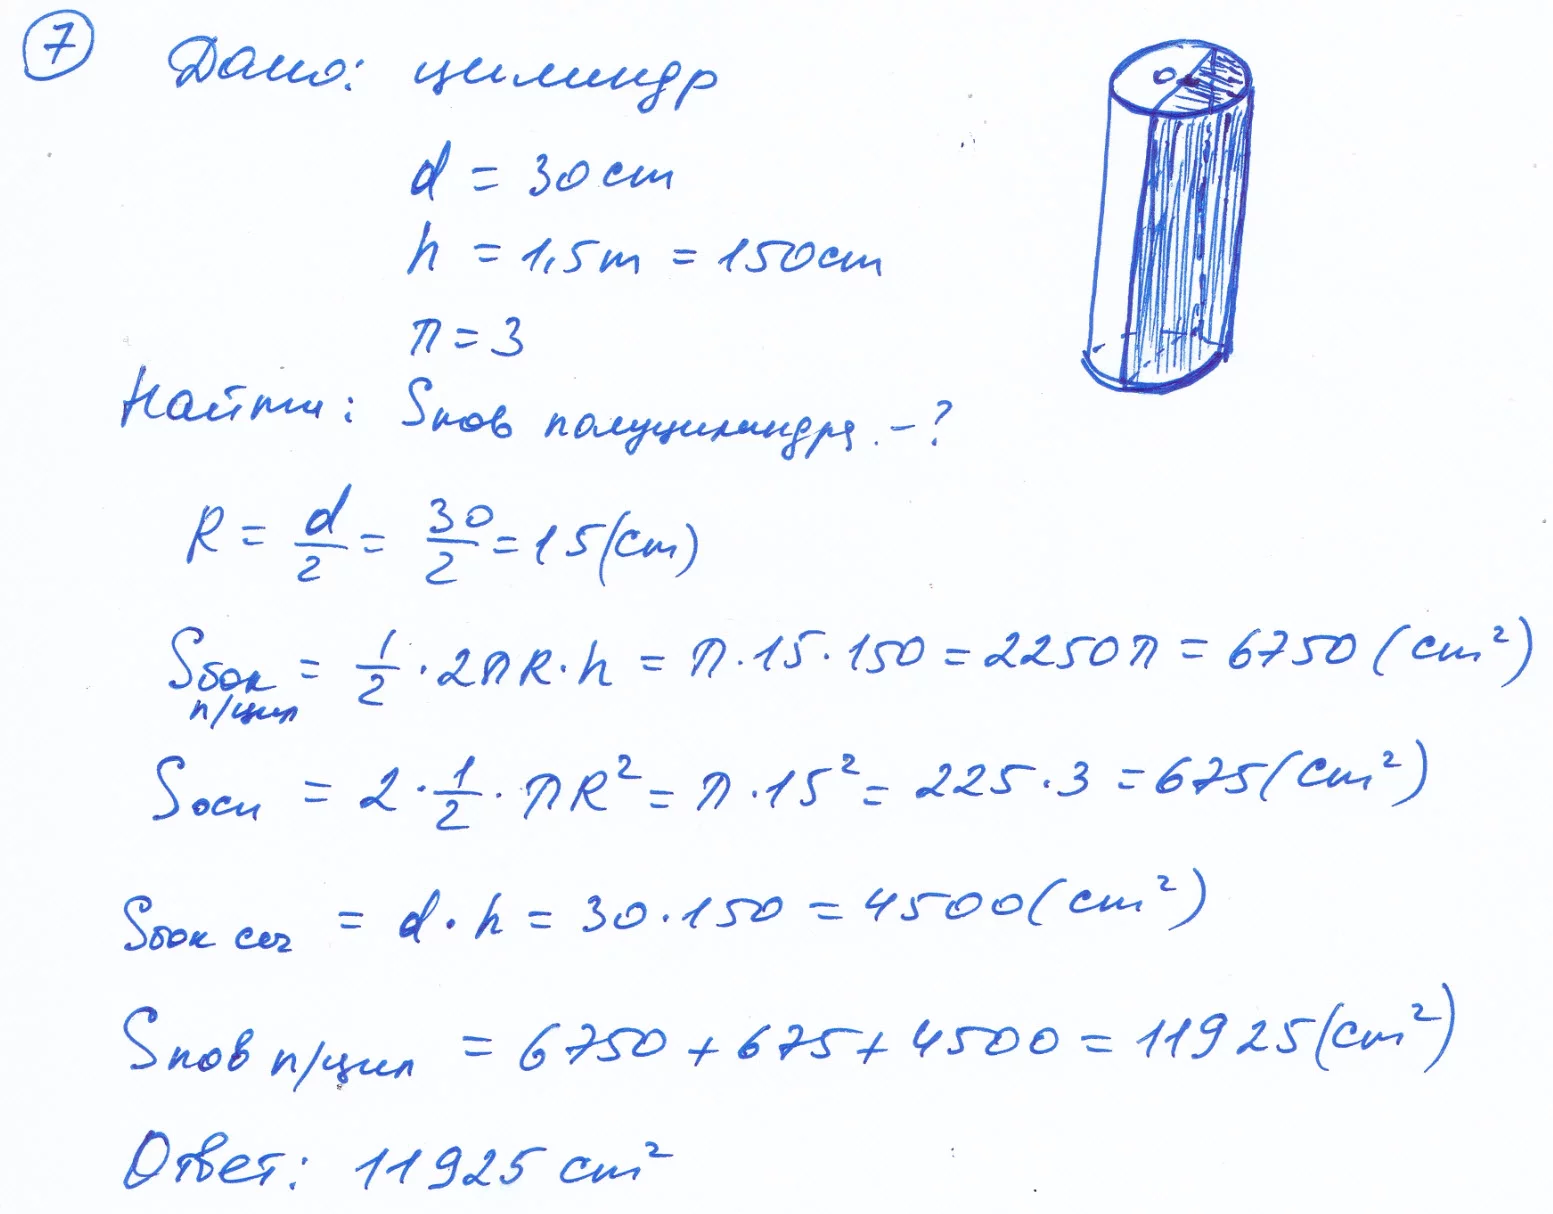 7 Дано: цилиндр
d = 30 cm
h = 1,5 m = 150 cm
π = 3
Найти: Sпов полуцилиндра. - ?
R = d/2 = 30/2 = 15 (cm)
Sбок п/цил = 1/2 · 2πR · h = π · 15 · 150 = 2250π = 6750 (cm²)
Sосн = 2 · 1/2 · πR² = π · 15² = 225 · 3 = 675 (cm²)
Sбок сеч = d · h = 30 · 150 = 4500 (cm²)
Sпов п/цил = 6750 + 675 + 4500 = 11925 (cm²)
Ответ: 11925 cm²